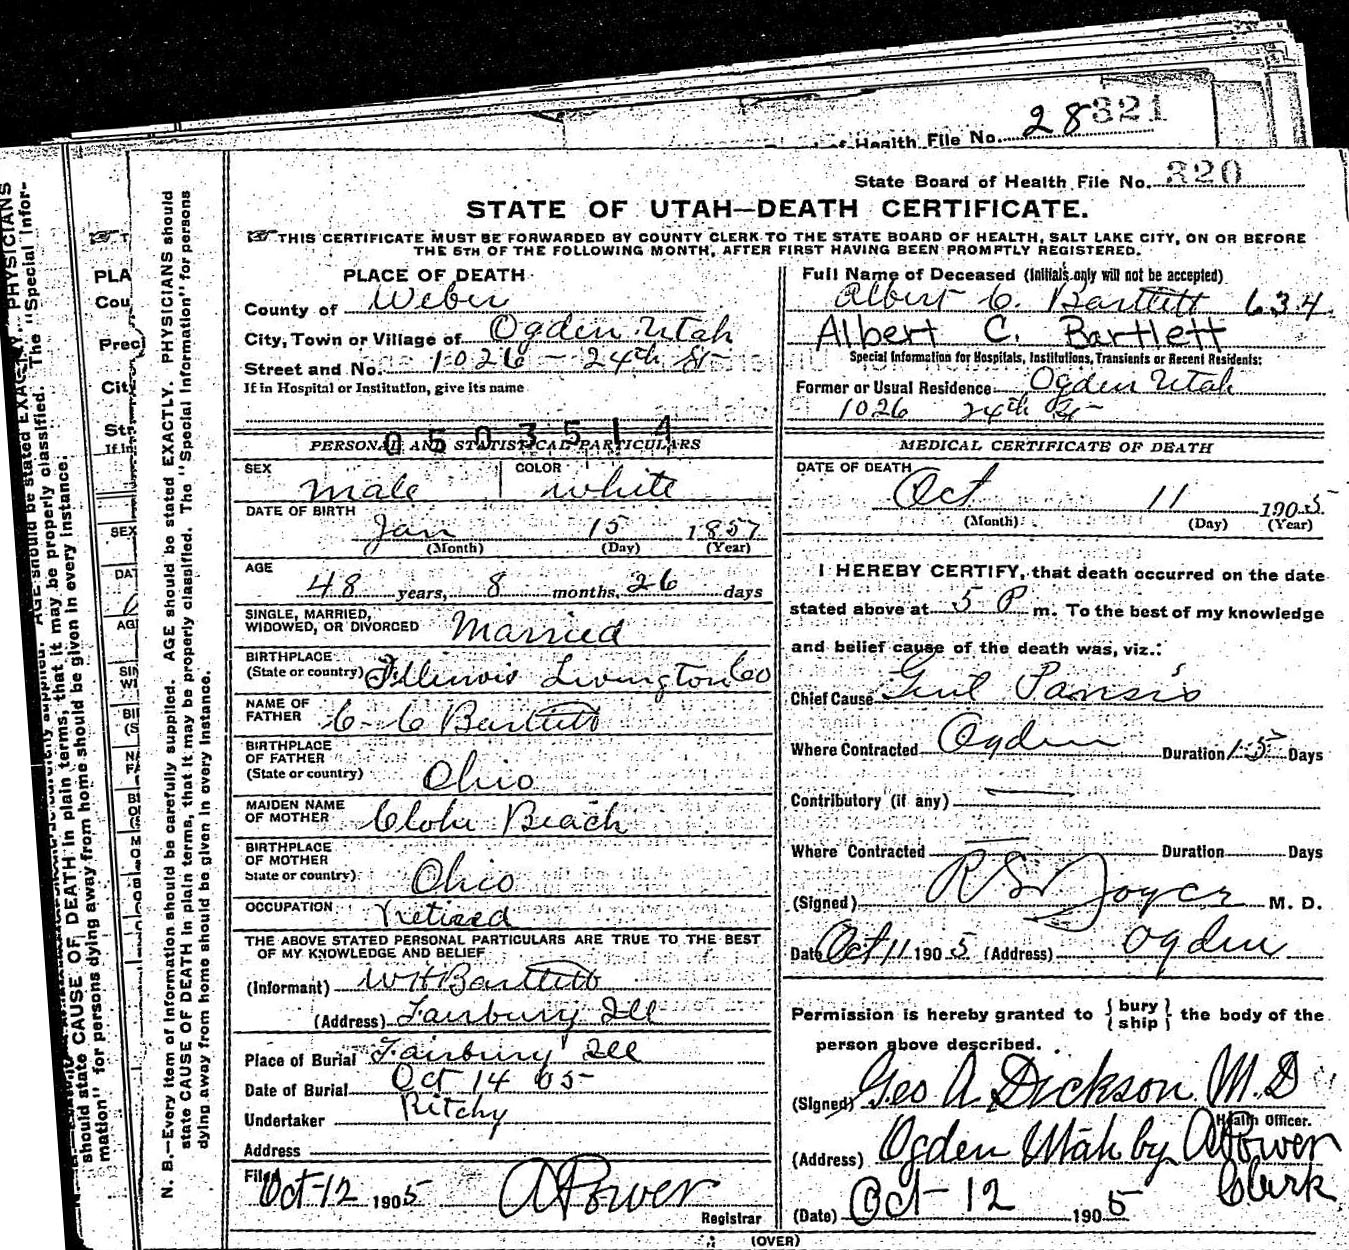 of Health File No. 28 321
State Board of Health File No. 320
STATE OF UTAH—DEATH CERTIFICATE.
☞ THIS CERTIFICATE MUST BE FORWARDED BY COUNTY CLERK TO THE STATE BOARD OF HEALTH, SALT LAKE CITY, ON OR BEFORE
THE 5TH OF THE FOLLOWING MONTH, AFTER FIRST HAVING BEEN PROMPTLY REGISTERED.
PLACE OF DEATH
County of Weber
City, Town or Village of Ogden Utah
Street and No. 1026 – 24th St
If in Hospital or Institution, give its name
0503514
PERSONAL AND STATISTICAL PARTICULARS
SEX male COLOR white
DATE OF BIRTH
Jan 15 1857
(Month) (Day) (Year)
AGE
48 years, 8 months, 26 days
SINGLE, MARRIED,
WIDOWED, OR DIVORCED Married
BIRTHPLACE
(State or country) Illinois Livington Co
NAME OF
FATHER C–C Bartlett
BIRTHPLACE
OF FATHER
(State or country) Ohio
MAIDEN NAME
OF MOTHER Clohe Beach
BIRTHPLACE
OF MOTHER
State or country) Ohio
OCCUPATION retired
THE ABOVE STATED PERSONAL PARTICULARS ARE TRUE TO THE BEST
OF MY KNOWLEDGE AND BELIEF
(Informant) W H Bartlett
(Address) Fairbury Ill
Place of Burial Fairbury Ill
Date of Burial Oct 14 05
Undertaker Ritchy
Address
Filed Oct-12 1905 A Power
Registrar
Full Name of Deceased (Initials only will not be accepted)
Albert C. Bartlett 634
Albert C. Bartlett
Special Information for Hospitals, Institutions, Transients or Recent Residents:
Former or Usual Residence Ogden Utah
1026 24th St
MEDICAL CERTIFICATE OF DEATH
DATE OF DEATH
Oct 11 1905
(Month) (Day) (Year)
I HEREBY CERTIFY, that death occurred on the date
stated above at 5 P m. To the best of my knowledge
and belief cause of the death was, viz.:
Chief Cause Genl Parisis
Where Contracted Ogden Duration 15 Days
Contributory (if any) —
Where Contracted — Duration Days
(Signed) R S Joyce M. D.
Date Oct 11 1905 (Address) Ogden
Permission is hereby granted to {bury} {ship} the body of the
person above described.
(Signed) Geo A Dickson M.D
Health Officer.
(Address) Ogden Utah by A Power
Clerk
(Date) Oct-12 1905
(OVER)
N. B.—Every item of Information should be carefully supplied. AGE should be stated EXACTLY. PHYSICIANS should
state CAUSE OF DEATH in plain terms, that it may be properly classified. The "Special Information" for persons
dying away from home should be given in every instance.